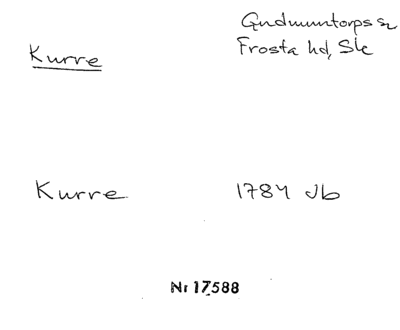 Kurre
Gudmuntorps sn
Frosta hd, Sk
Kurre
1784 Jb
Nr 17588